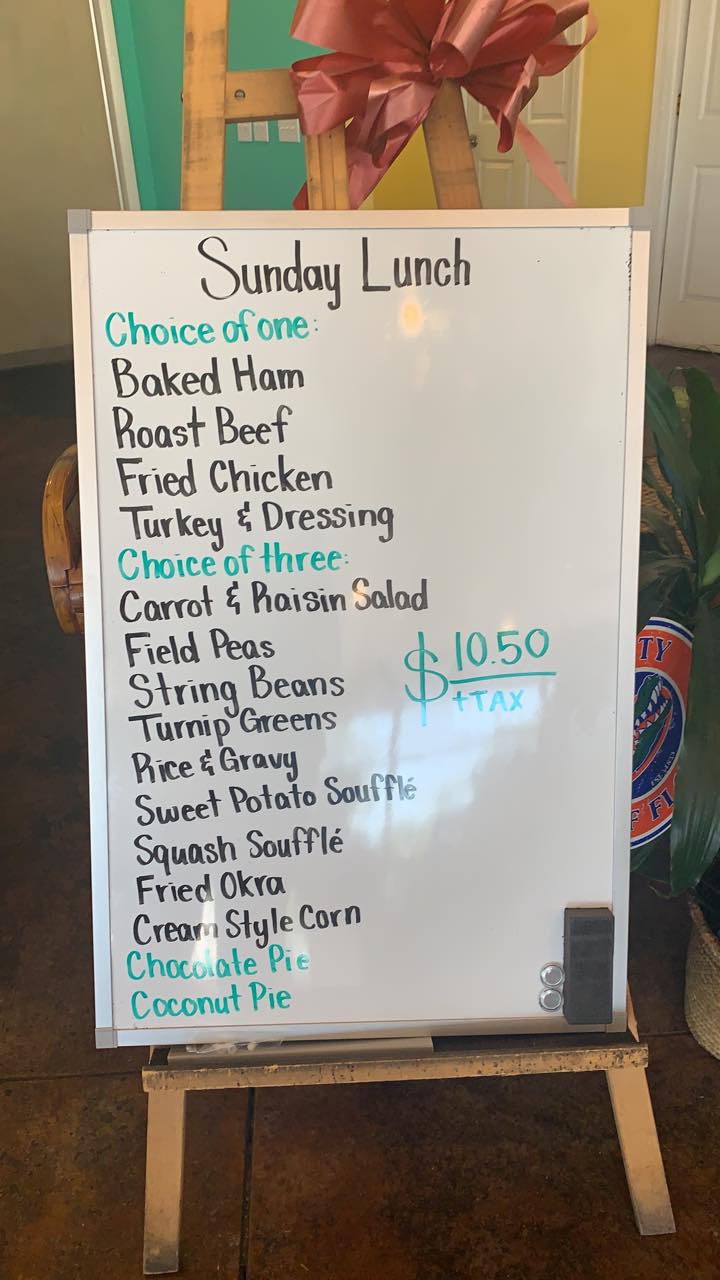 Sunday Lunch
Choice of one:
Baked Ham
Roast Beef
Fried Chicken
Turkey & Dressing
Choice of three:
Carrot & Raisin Salad
Field Peas
String Beans
Turnip Greens
Rice & Gravy
Sweet Potato Soufflé
Squash Soufflé
Fried Okra
Cream Style Corn
Chocolate Pie
Coconut Pie
$10.50
+TAX
TY
F FL